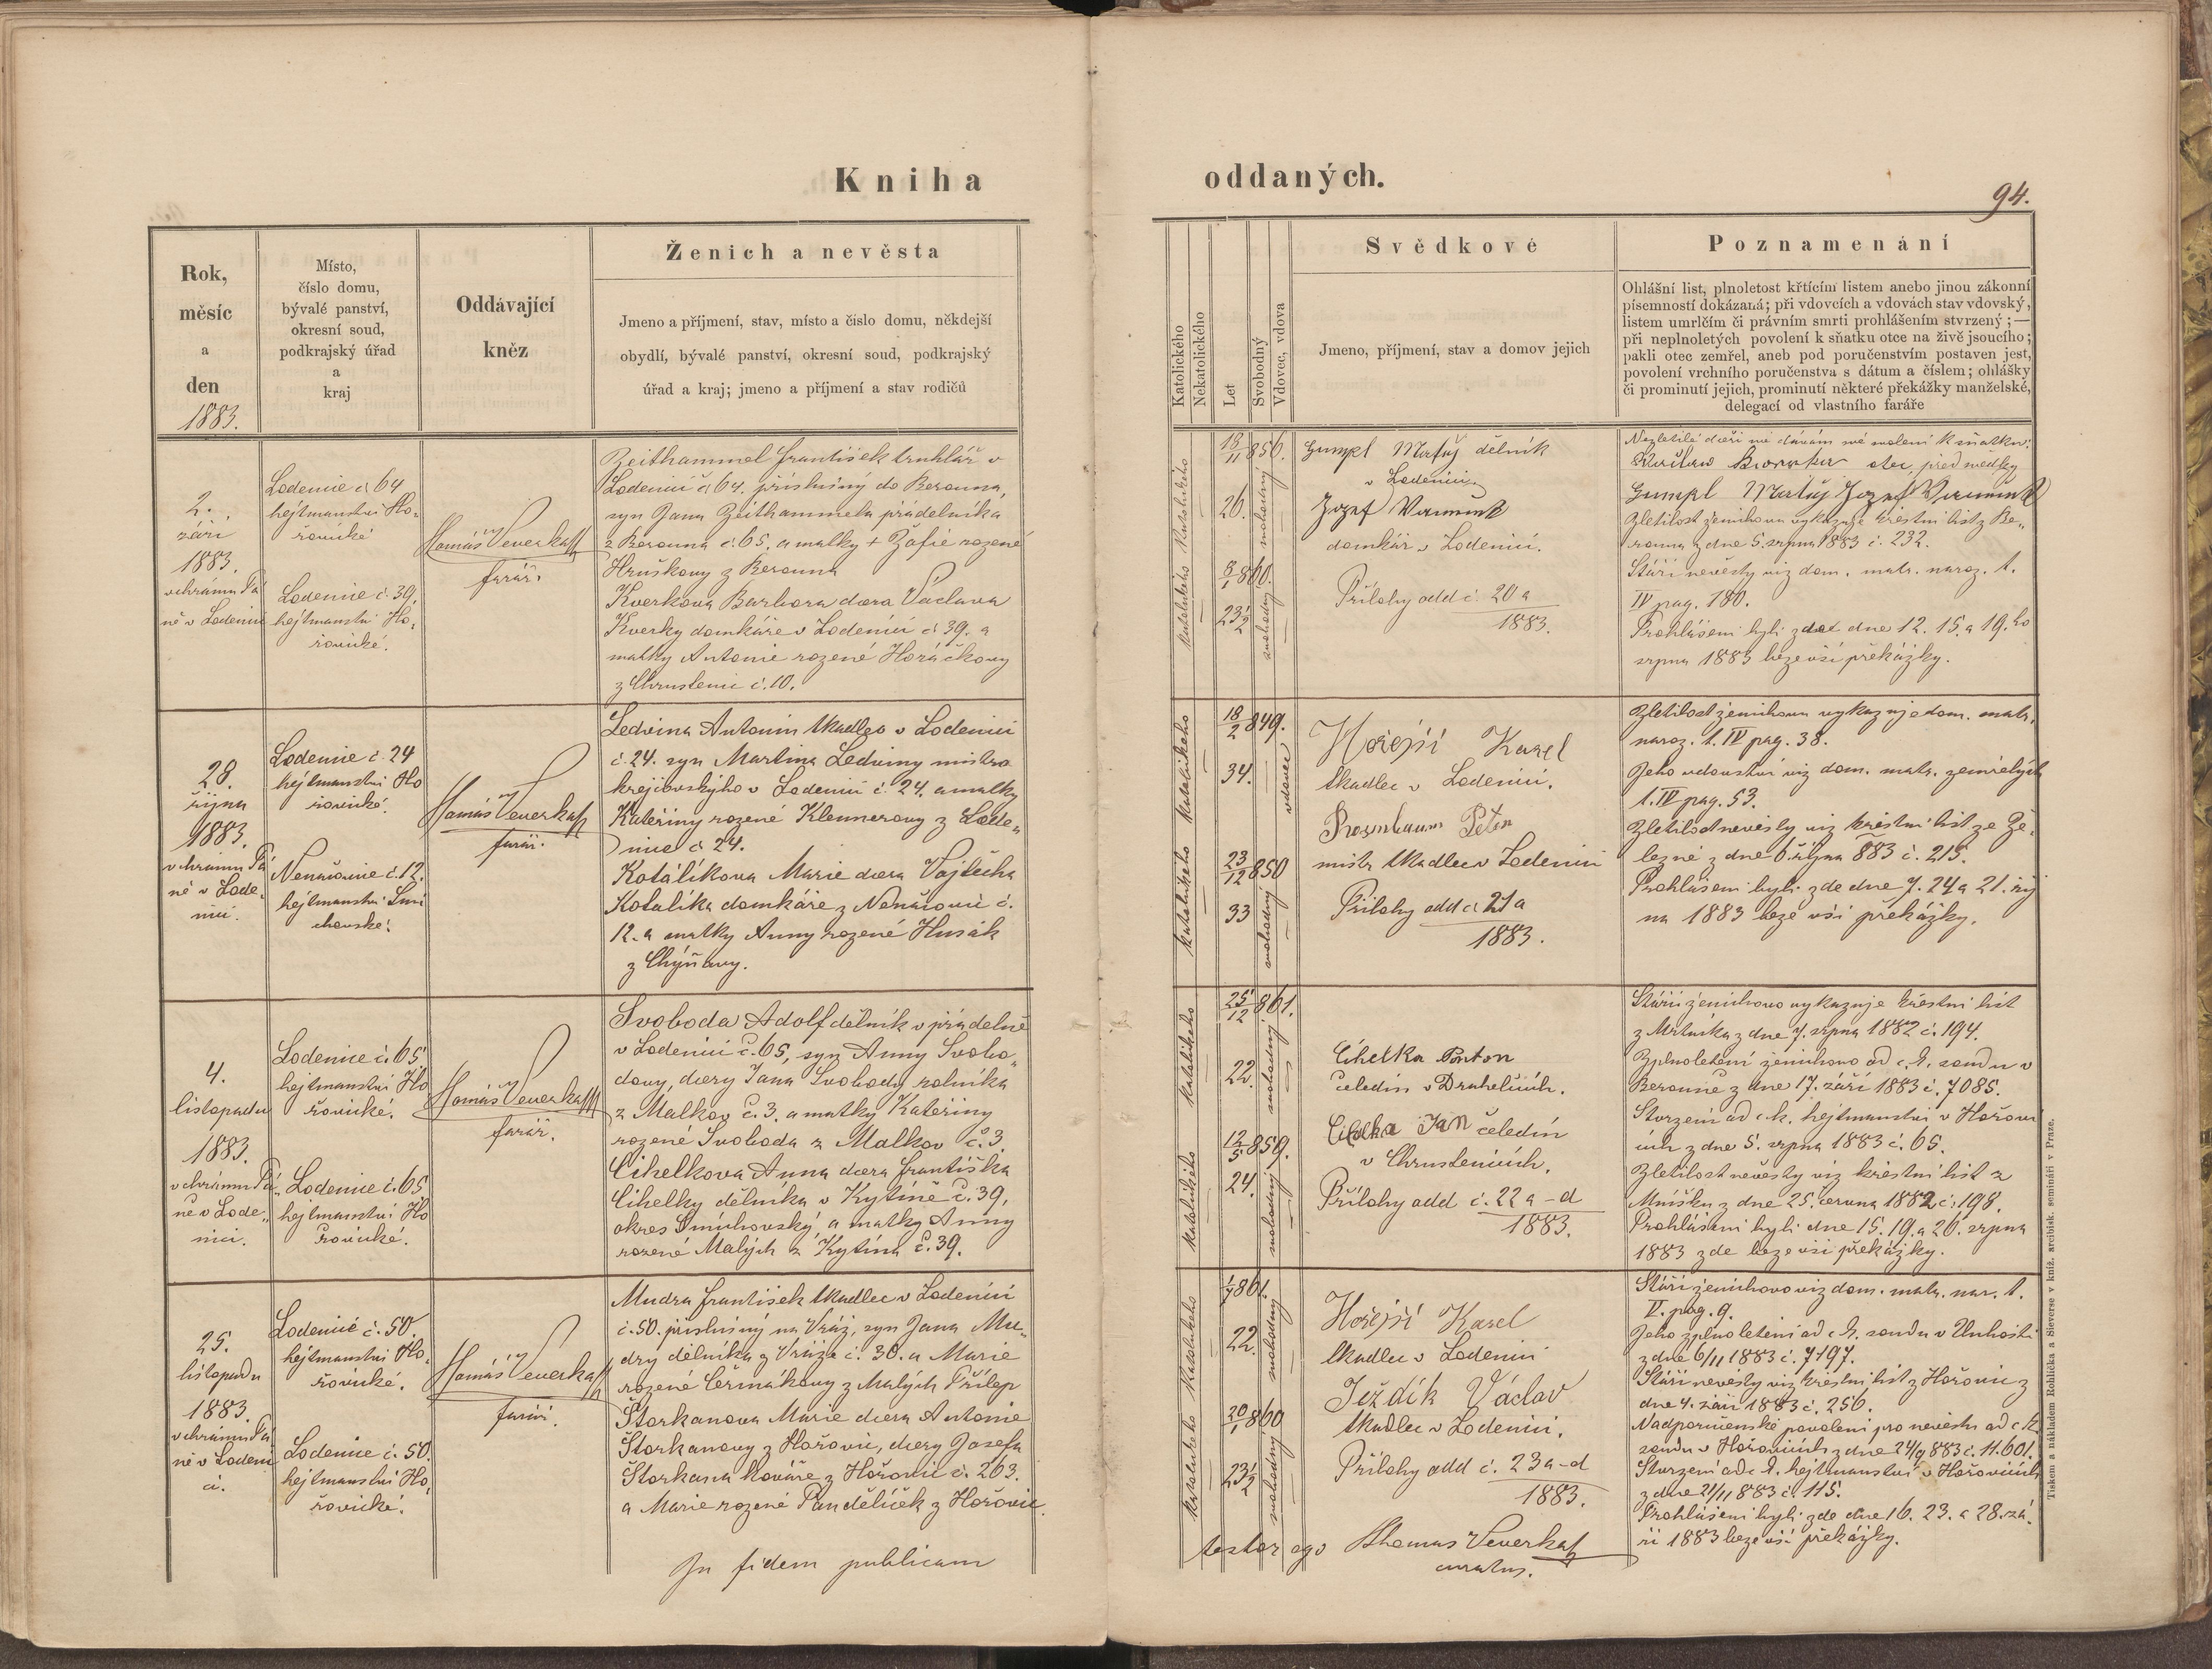 Kniha oddaných.
94.
Rok,
měsíc
a
den
1883.
Místo,
číslo domu,
bývalé panství,
okresní soud,
podkrajský úřad
a
kraj
Oddávající
kněz
Ženich a nevěsta
Jmeno a příjmení, stav, místo a číslo domu, někdejší
obydlí, bývalé panství, okresní soud, podkrajský
úřad a kraj; jmeno a příjmení a stav rodičů
Katolického
Nekatolického
Let
Svobodný
Vdovec, vdova
Svědkové
Jmeno, příjmení, stav a domov jejich
Poznamenání
Ohlášní list, plnoletost křtícím listem anebo jinou zákonní
písemností dokázaná; při vdovcích a vdovách stav vdovský,
listem umrlčím či právním smrti prohlášením stvrzený; —
při neplnoletých povolení k sňatku otce na živě jsoucího;
pakli otec zemřel, aneb pod poručenstvím postaven jest,
povolení vrchního poručenstva s dátum a číslem; ohlášky
či prominutí jejich, prominutí některé překážky manželské,
delegací od vlastního faráře
2.
září
1883.
v chrámu Pá
ně v Lodenici
Lodenice č 64
hejtmanství Ho-
řovické
Lodenice č. 39.
hejtmanství Ho-
řovické.
Tomáš Veverka
farář.
Zeithammel František truhlář v
Lodenici č 64. příslušný do Berouna,
syn Jana Zeithammela pradelníka
z Berouna č. 65. a matky + Žofie rozené
Hruškovy z Berouna
Kverkova Barbora dcera Václava
Kverky domkáře v Lodenici č 39. a
matky Antonie rozené Horáčkovy
z Chrustenic č. 10.
katolického
svobodný
26.
8/1 860.
23 1/2
Gumpl Matěj dělník
v Lodenici
Jozef
domkář v Lodenici.
Přílohy odd č. 20 a
1883.
Nezletilé dceři mé dávám mé svolení k sňatku:
otec, před svědky
Gumpl Matěj Jozef
Zletilost ženichovu vykazuje křestní list z Be-
rouna z dne 5. srpna 1883 č. 232.
Stáří nevěsty viz dom. matr. naroz. t.
IV pag. 180.
Prohlášeni byli zde dne 12. 15. a 19. ho
srpna 1883 beze vší překážky.
28.
října
1883.
v chrámu Pá
ně v Lode-
nici.
Lodenice č. 24
hejtmanství Ho
řovické.
Nenačovice č. 12.
hejtmanství Smí
chovské.
Tomáš Veverka
farář.
Ledvina Antonín tkadlec v Lodenici
č. 24. syn Martina Ledviny mistra
krejčovskýho v Lodenici č. 24. a matky
Kateřiny rozené Klennerovy z Lode-
nice č 24.
Kotálikova Marie dcera Vojtěcha
Kotalíka domkáře z Nenačovic č.
12. a matky Anny rozené Husák
z Chýňavy.
18/2 849.
34.
vdovec
23/12 850
33
svobodný
Hořejší Karel
tkadlec v Lodenici.
Rosenbaum Peter
mistr tkadlec v Lodenici
Přílohy odd č 21 a
1883.
Zletilost ženichovu vykazuje dom. matr.
naroz. t. IV pag. 38.
Jeho vdovství viz dom. matr. zemřelých
t. IV pag. 53.
Zletilost nevěsty viz křestní list ze Že-
lezné z dne 6. října 883 č. 215.
Prohlášeni byli zde dne 7. 24 a 21. říj
na 1883 beze vší překážky.
4.
listopadu
1883.
v chrámu Pá-
ně v Lode-
nici.
Lodenice č. 65
hejtmanství Ho
řovické.
Lodenice č. 65
hejtmanství Ho
řovické.
Tomáš Veverka
farář.
Svoboda Adolf dělník v přádelně
v Lodenici č. 65, syn Anny Svobo-
dovy, dcery Jana Svobody rolníka
z Malkov č. 3. a matky Kateřiny
rozené Svoboda z Malkov č. 3.
Cihelkova Anna dcera Františka
Cihelky dělníka v Kytíně č. 39,
okres Smíchovský, a matky Anny
rozené Malých z Kytína č. 39.
25/12 861.
22.
svobodný
12/5 859.
24.
svobodný
Cihelka Anton
čeledín v Druhelicích.
Cihelka Jan čeledín
v Chrustenicích.
Přílohy odd č. 22 a - d
1883.
Stáří ženichovo vykazuje křestní list
z dne 7. srpna 1882 č. 194.
Zplnoletění ženichovo od c. k. soudu v
Berouně z dne 17. září 1883 č. 7085.
Stvrzení od c. k. hejtmanství v Hořovi
cích z dne 5. srpna 1883 č. 65.
Zletilost nevěsty viz křestní list z
Mníšku z dne 25. června 1882 č. 198.
Prohlášeni byli dne 15. 19. a 26. srpna
1883 zde beze vší překážky.
25.
listopadu
1883.
v chrámu Pá
ně v Lodeni
ci.
Lodenice č. 50.
hejtmanství Ho-
řovické.
Lodenice č. 50.
hejtmanství Ho-
řovické.
Tomáš Veverka
farář.
Mudra František tkadlec v Lodenici
č. 50. příslušný na Vráž, syn Jana Mu-
dry dělníka z Vráže č. 30. a Marie
rozené Čermákovy z Malých Přílep
Štorkanova Marie dcera Antonie
Štorkanovy z Hořovic, dcery Josefa
Štorkana kováře z Hořovic č. 263.
a Marie rozené Pandělíček z Hořovic.
1/7 861.
22.
svobodný
20/1 860
23 1/2
svobodný
Hořejší Karel
tkadlec v Lodenici
Ježdík Václav
tkadlec v Lodenici.
Přílohy odd č. 23 a - d
1883.
Stáří ženichovo viz dom. matr. nar. t.
V. pag. 9.
Jeho zplnoletění od c k. soudu v Unhošti
z dne 6/11 1883 č. 7197.
Stáří nevěsty viz křestní list z Hořovic z
dne 4. září 1883 č. 256.
Nadporučenské povolení pro nevěstu od c k.
soudu v Hořovicích z dne 24/9 883 č. 11.601.
Stvrzení od c. k. hejtmanství v Hořovicích
z dne 21/11 883 č. 115.
Prohlášeni byli zde dne 16. 23. a 28. zá-
ří 1883 beze vší překážky.
In fidem publicam testor ego Thomas Veverka
curatus.
Tiskem a nákladem Rohlíčka a Sieverse v kníž. arcibisk. semináři v Praze.